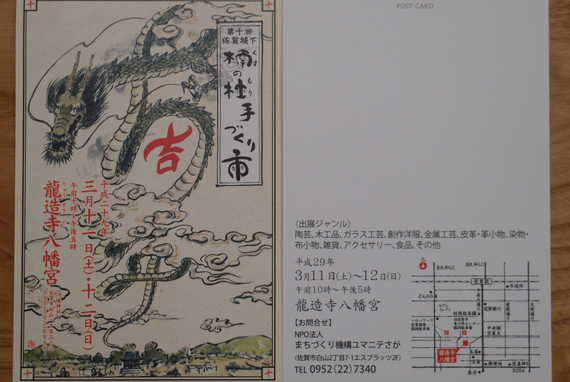 第十回
佐賀城下
楠の杜
くす もり
手づくり市
吉
平成二十九年
三月十一日(土)・十二日(日)
午前十時〜午後五時
龍造寺八幡宮
POST CARD
〈出展ジャンル〉
陶芸、木工品、ガラス工芸、創作洋服、金属工芸、皮革・革小物、染物・
布小物、雑貨、アクセサリー、食品、その他
平成29年
3月11日(土)〜12日(日)
午前10時〜午後5時
龍造寺八幡宮
【お問合せ】
NPO法人
まちづくり機構ユマニテさが
(佐賀市白山2丁目7-1エスプラッツ2F)
TEL 0952(22)7340
龍造寺
八幡宮